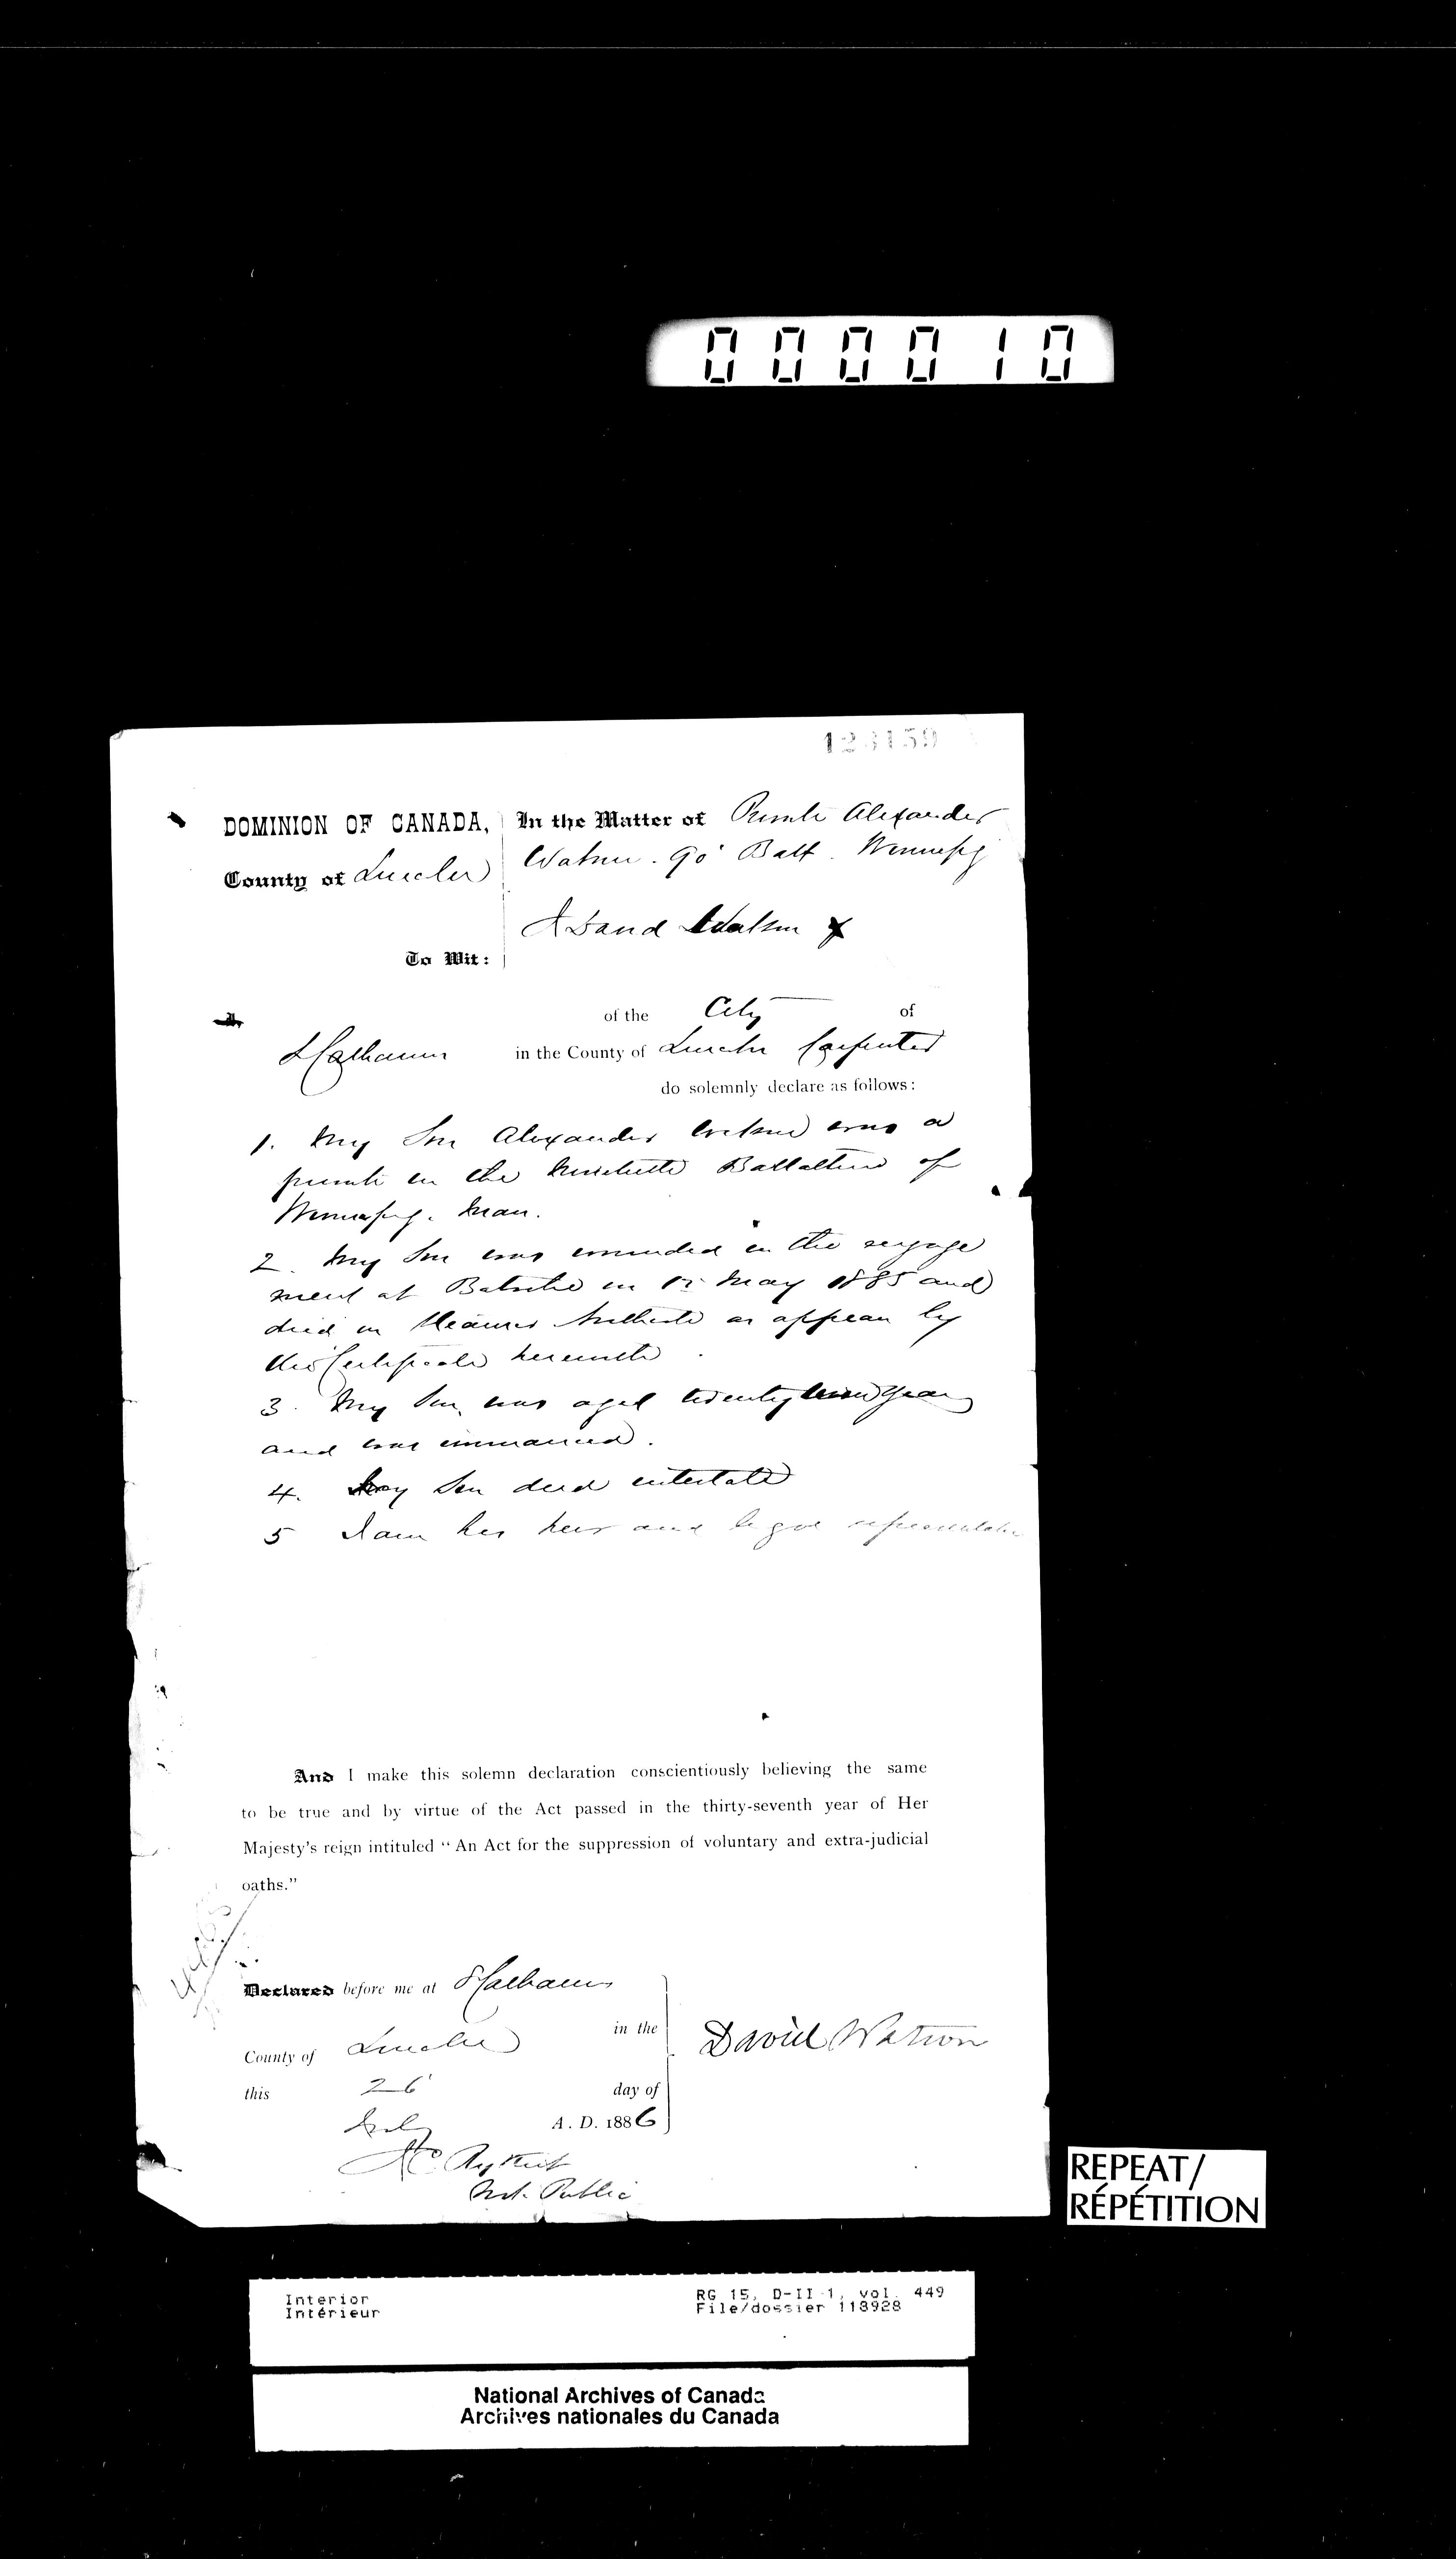 000010
123159
DOMINION OF CANADA,
County of Lincoln
To Wit:
In the Matter of Private Alexander
Watson. 90' Batt. Winnipeg
I David Watson
I,
of the City of
St Catharines in the County of Lincoln Carpenter
do solemnly declare as follows:
1. My Son Alexander Watson was a
private in the Ninetieth Battalion of
Winnipeg. Man.
2. My Son was wounded in the engage
ment at Batoche on May 1885 and
died on Steamer Northcote as appears by
the Certificate herewith.
3. My Son was aged twenty years
and was unmarried.
4. My Son died intestate
5 I am his heir and legal representative
And I make this solemn declaration conscientiously believing the same
to be true and by virtue of the Act passed in the thirty-seventh year of Her
Majesty's reign intituled “An Act for the suppression of voluntary and extra-judicial
oaths.”
Declared before me at St Catharines
in the
County of Lincoln
this 26' day of
July A. D. 1886
David Watson
Rykert
Not. Public
REPEAT/
RÉPÉTITION
Interior
Intérieur
RG 15, D-II-1, vol. 449
File/dossier 118928
National Archives of Canada
Archives nationales du Canada